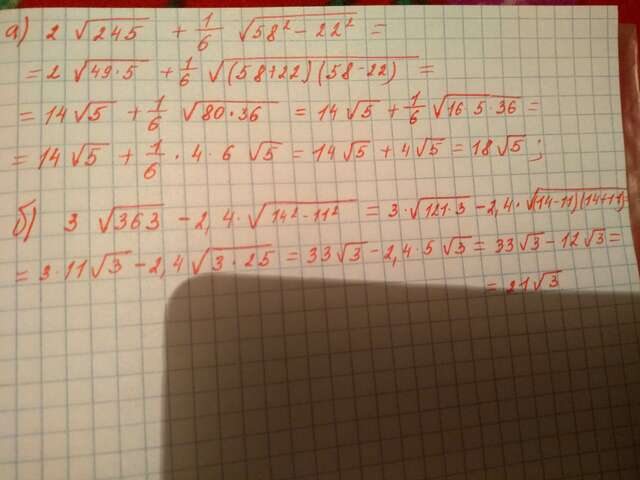 а) 2 √245 + 1/6 √(58² − 22²) =
= 2 √(49·5) + 1/6 √((58+22)(58−22)) =
= 14√5 + 1/6 √(80·36) = 14√5 + 1/6 √(16·5·36) =
= 14√5 + 1/6 · 4 · 6 √5 = 14√5 + 4√5 = 18√5 ;
б) 3 √363 − 2,4 · √(14² − 11²) = 3 · √(121·3) − 2,4 · √((14−11)(14+11)) =
= 3 · 11√3 − 2,4 √(3·25) = 33√3 − 2,4 · 5 √3 = 33√3 − 12√3 =
= 21√3